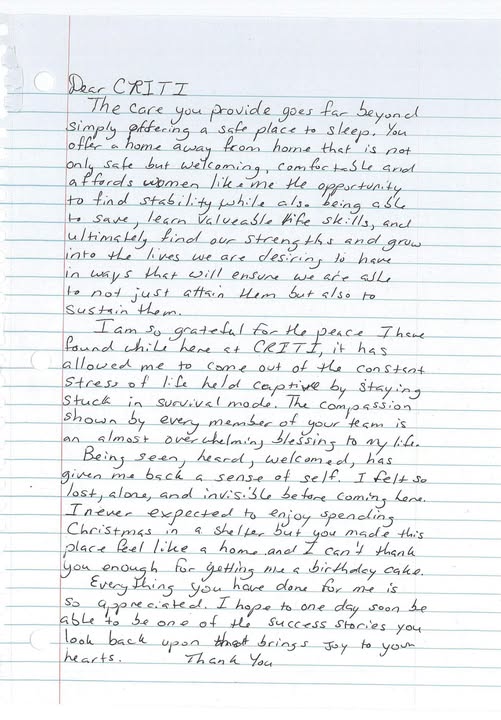 Dear CRITI
The care you provide goes far beyond
simply offering a safe place to sleep. You
offer a home away from home that is not
only safe but welcoming, comfortable and
affords women like me the opportunity
to find stability while also being able
to save, learn valueable life skills, and
ultimately find our strengths and grow
into the lives we are desiring to have
in ways that will ensure we are able
to not just attain them but also to
sustain them.
I am so grateful for the peace I have
found while here at CRITI, it has
allowed me to come out of the constant
stress of life held captive by staying
stuck in survival mode. The compassion
shown by every member of your team is
an almost overwhelming blessing to my life.
Being seen, heard, welcomed, has
given me back a sense of self. I felt so
lost, alone, and invisible before coming here.
I never expected to enjoy spending
Christmas in a shelter but you made this
place feel like a home and I can't thank
you enough for getting me a birthday cake.
Everything you have done for me is
so appreciated. I hope to one day soon be
able to be one of the success stories you
look back upon that brings joy to your
hearts. Thank You